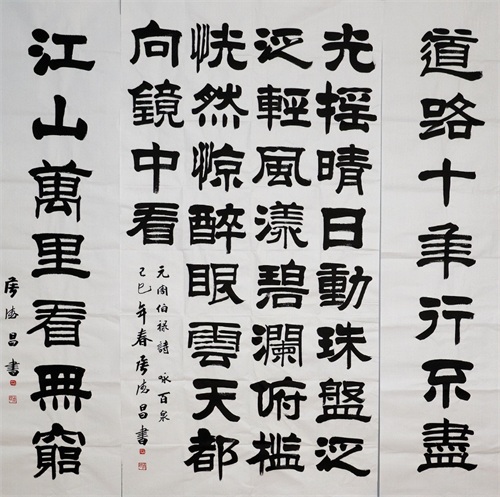 道路十年行不盡
光摇晴日動珠盤泛
泛輕風漾碧瀾俯檻
恍然惊醉眼雲天都
向鏡中看
元周伯禄詩 咏百泉
乙巳年春 昌書
江山萬里看無窮
昌書